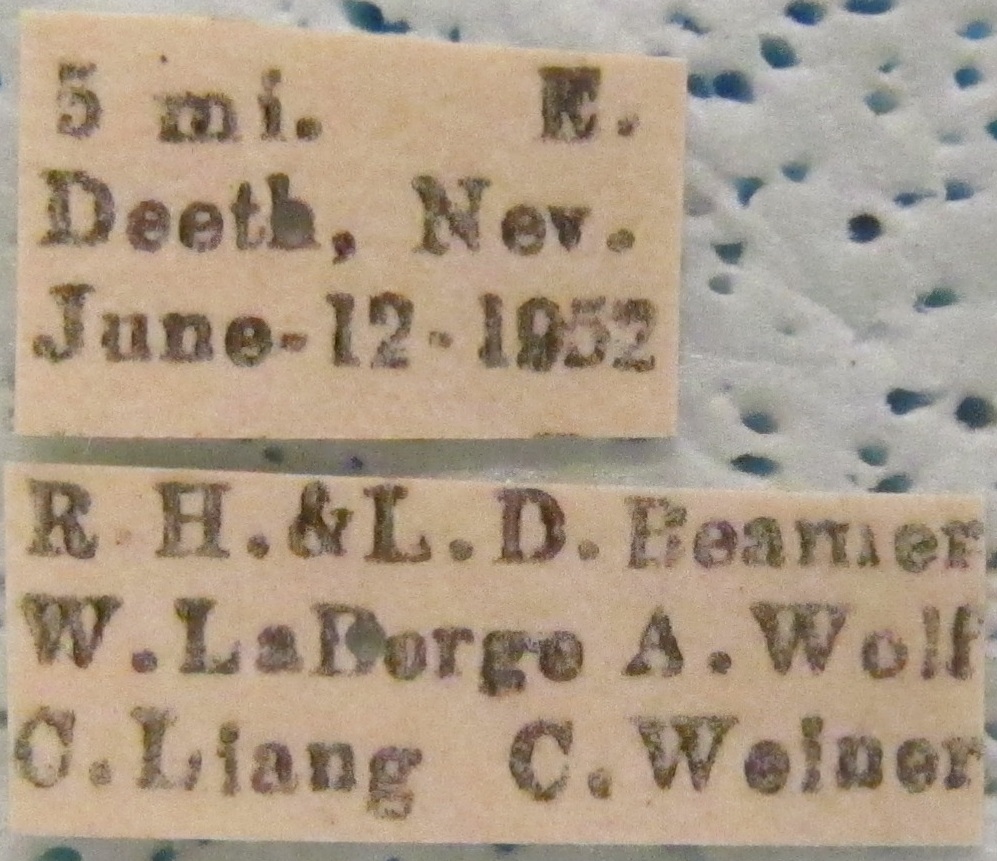 5 mi. E.
Deeth, Nev.
June-12-1952
R. H. & L. D. Beamer
W. LaBerge A. Wolf
C. Liang C. Weiner